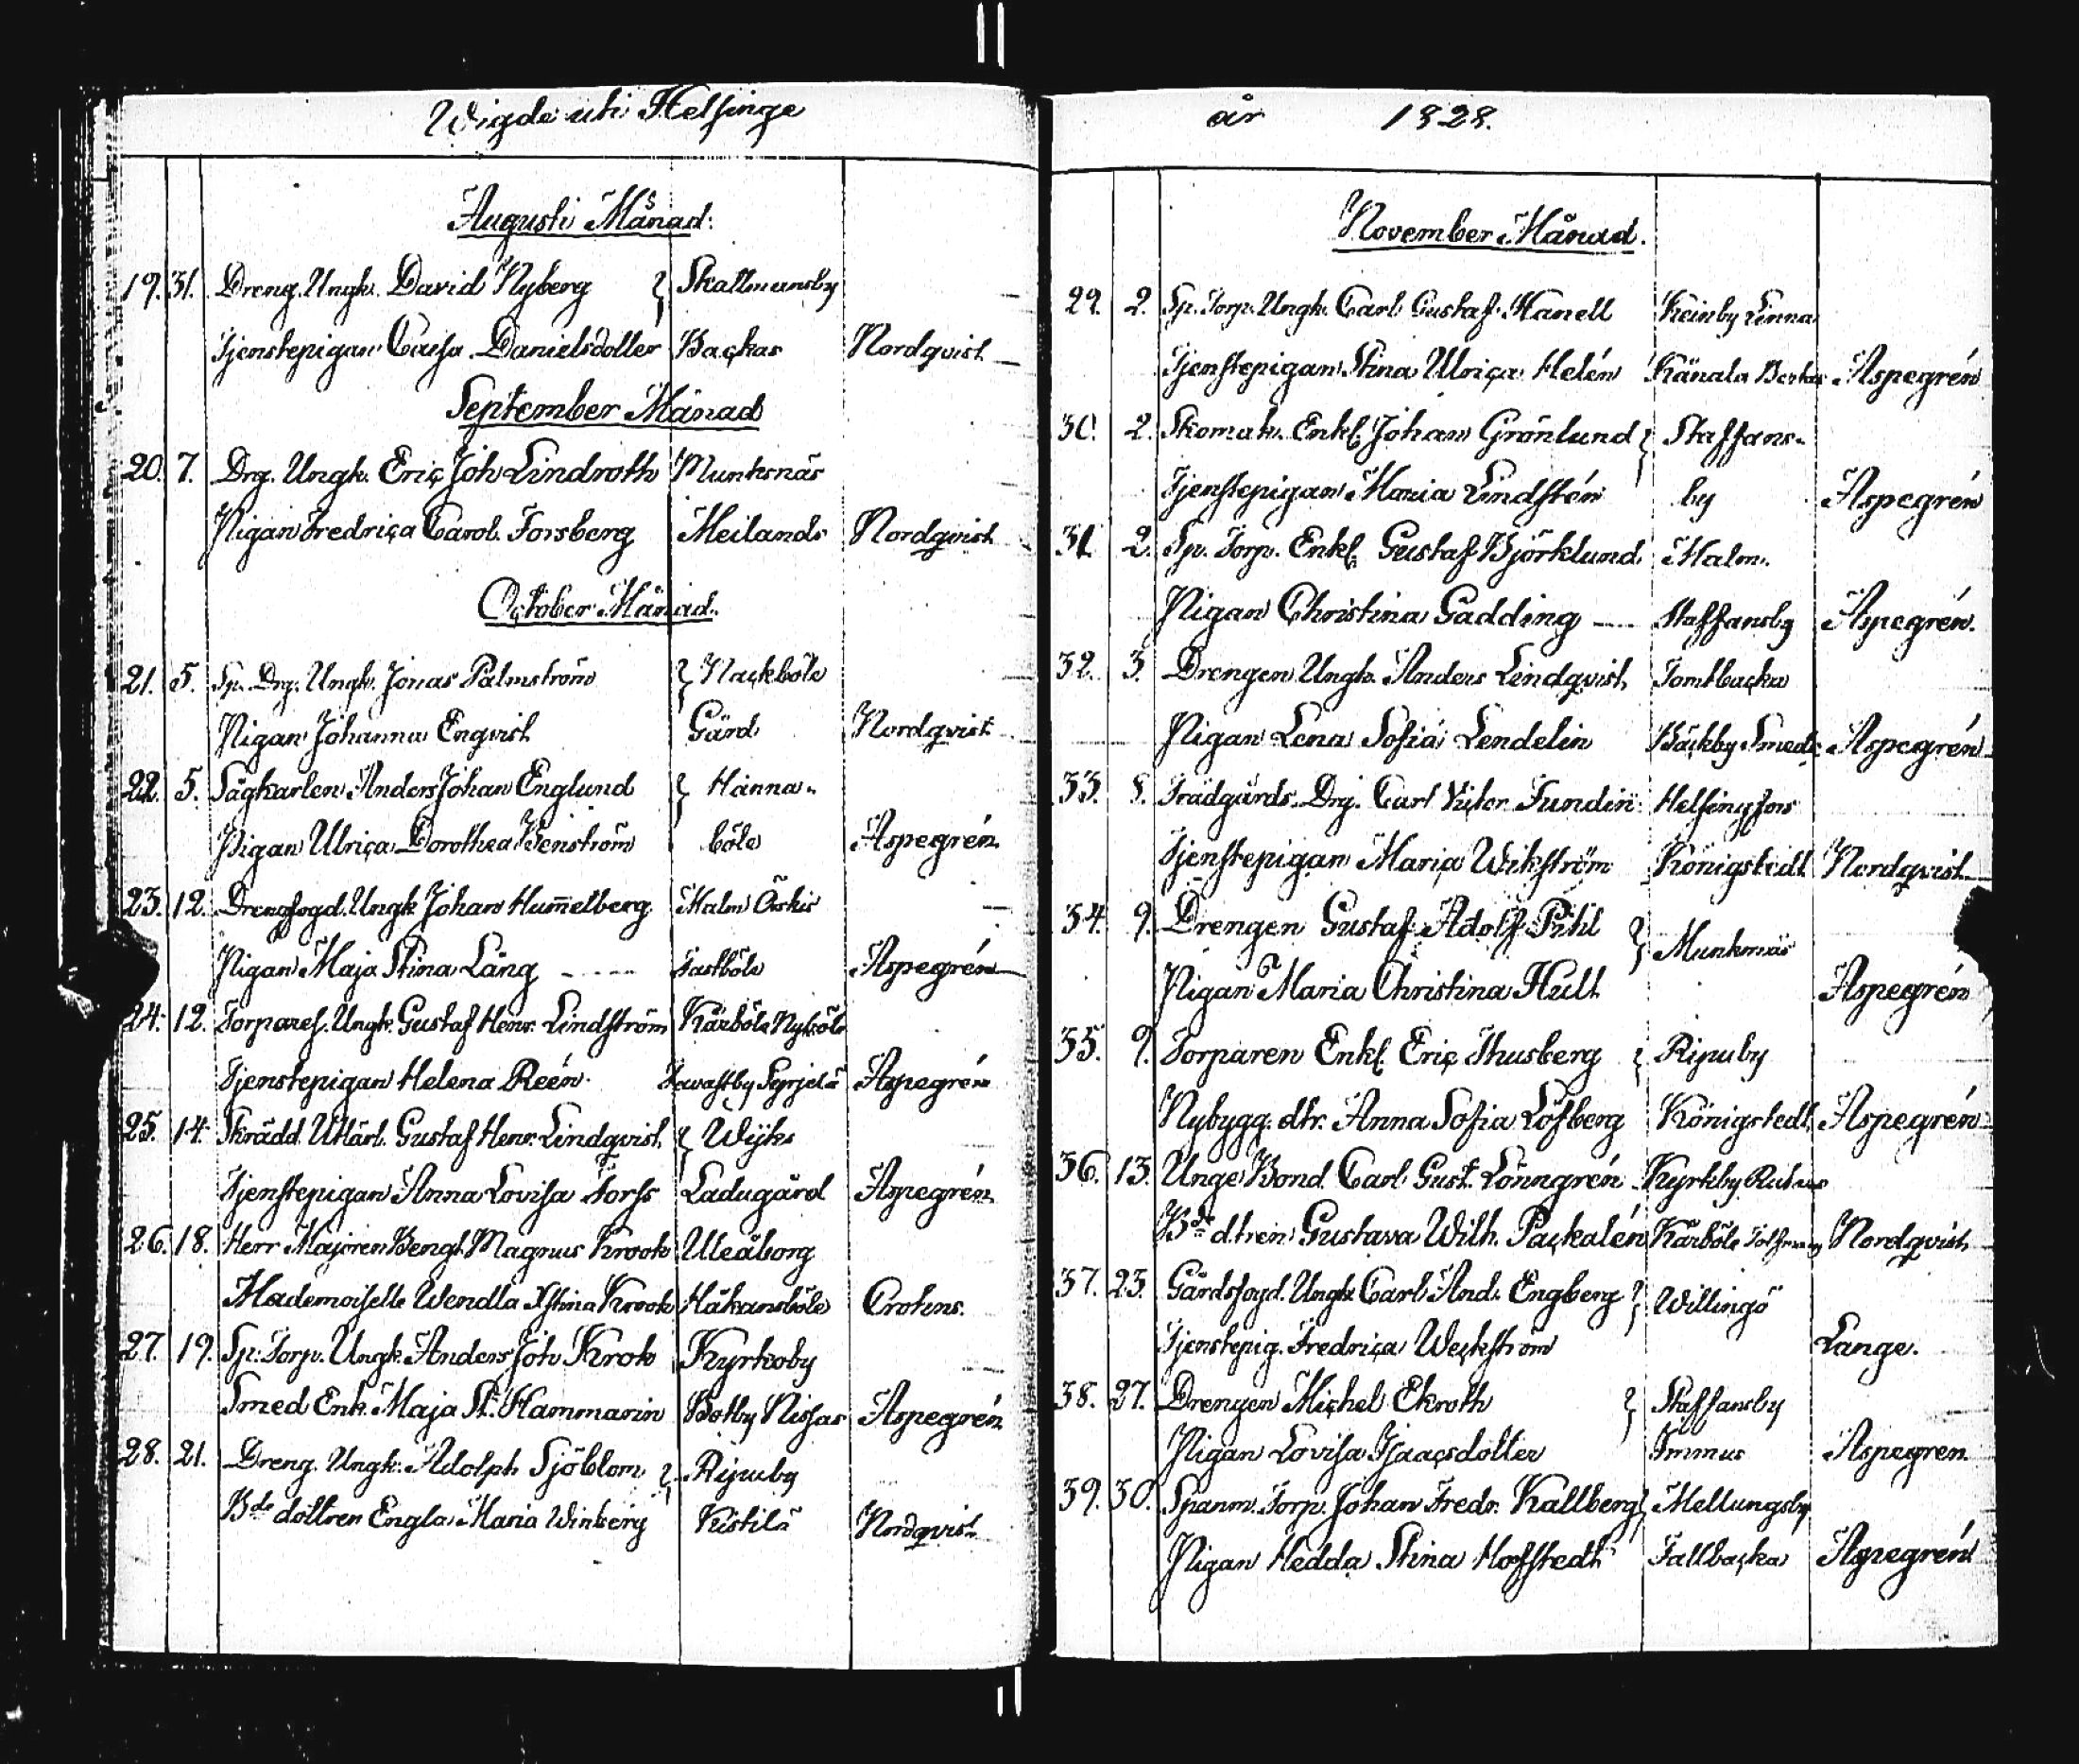 Wigde uti Helsinge
Augusti Månad.
19. 31. Dreng. Ungk. David Nyberg } Skattmansby
Tjenstepigan Caisa Danielsdotter Backas Nordqvist
September Månad
20. 7. Drg. Ungk. Eric Joh Lindroth Munksnäs
Pigan Fredrica Carol. Forsberg Meilands Nordqvist
October Månad.
21. 5. Sp. Drg. Ungk. Jonas Palmström } Nackböle
Pigan Johanna Engvist Gård Nordqvist
22. 5. Sågkarlen Anders Johan Englund } Hanna-
Pigan Ulrica Dorothea Wenström böle Aspegrén
23. 12. Drengfogd. Ungk Johan Hum̄elberg Malm
Pigan Maja Stina Lång - - - - Tastböle Aspegrén
24. 12. Torparef. Ungk. Gustaf Henr. Lindström Kårböle Nyböle
Tjenstepigan Helena Reén. Aspegrén
25. 14. Skrädd. Utlärl. Gustaf Henr. Lindqvist } Wijks
Tjenstepigan Anna Lovisa Forss Ladugård Aspegrén
26. 18. Herr Majoren Bengt Magnus Krook Uleåborg
Mademoiselle Wendla Xstina Krook Håkansböle Crohns.
27. 19. Sp. Torp. Ungk. Anders Joh Krok Kyrkoby
Smed Enk. Maja St. Hammarin Botby Nissas Aspegrén
28. 21. Dreng. Ungk. Adolph Sjöblom } Ripuby
Bde dottren Engla Maria Winberg Kistilä Nordqvist
år 1828.
November Månad.
29. 2. Sp. Torp. Ungk. Carl Gustaf Hanell
Tjenstepigan Stina Ulrica Helén Kånala Aspegrén
30. 2. Skomak. Enkl. Johan Grönlund } Staffans-
Tjenstepigan Maria Lindstén by Aspegrén
31. 2. Sp. Torp. Enkl. Gustaf Björklund Malm.
Pigan Christina Gadding — Staffansby Aspegrén.
32. 3. Drengen Ungk. Anders Lindqvist Tomtbacka
Pigan Lena Sofia Lendelin Bäckby Smeds Aspegrén
33. 8. Trädgårds. Drg. Carl Fundin Helsingfors
Tjenstepigan Maria Wikström Königstedt Nordqvist
34. 9. Drengen Gustaf Adolf Pihl } Munksnäs
Pigan Maria Christina Hult Aspegrén
35. 9. Torparen Enkl. Eric Thusberg } Ripuby
Nybygg. dtr. Anna Sofia Löfberg Königstedt Aspegrén
36. 13. Unge Bond. Carl Gust. Lönngrén Kyrkby
Bde dtren Gustava Wilh. Packalén Kårböle Nordqvist
37. 23. Gårdsfogd. Ungk. Carl And. Engberg } Willingö
Tjenstepig. Fredrica Weckström Lange.
38. 27. Drengen Michel Ekroth } Staffansby
Pigan Lovisa Isaacsdotter Immus Aspegren.
39. 30. Spanm. Torp. Johan Fredr. Kallberg } Mellungsby
Pigan Hedda Stina Hoffstedt Fallbacka Aspegrén